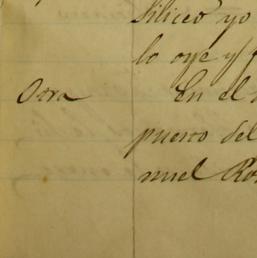 Siliceo yo
lo oye y f
Otra En el
puerto del
nuel Ro